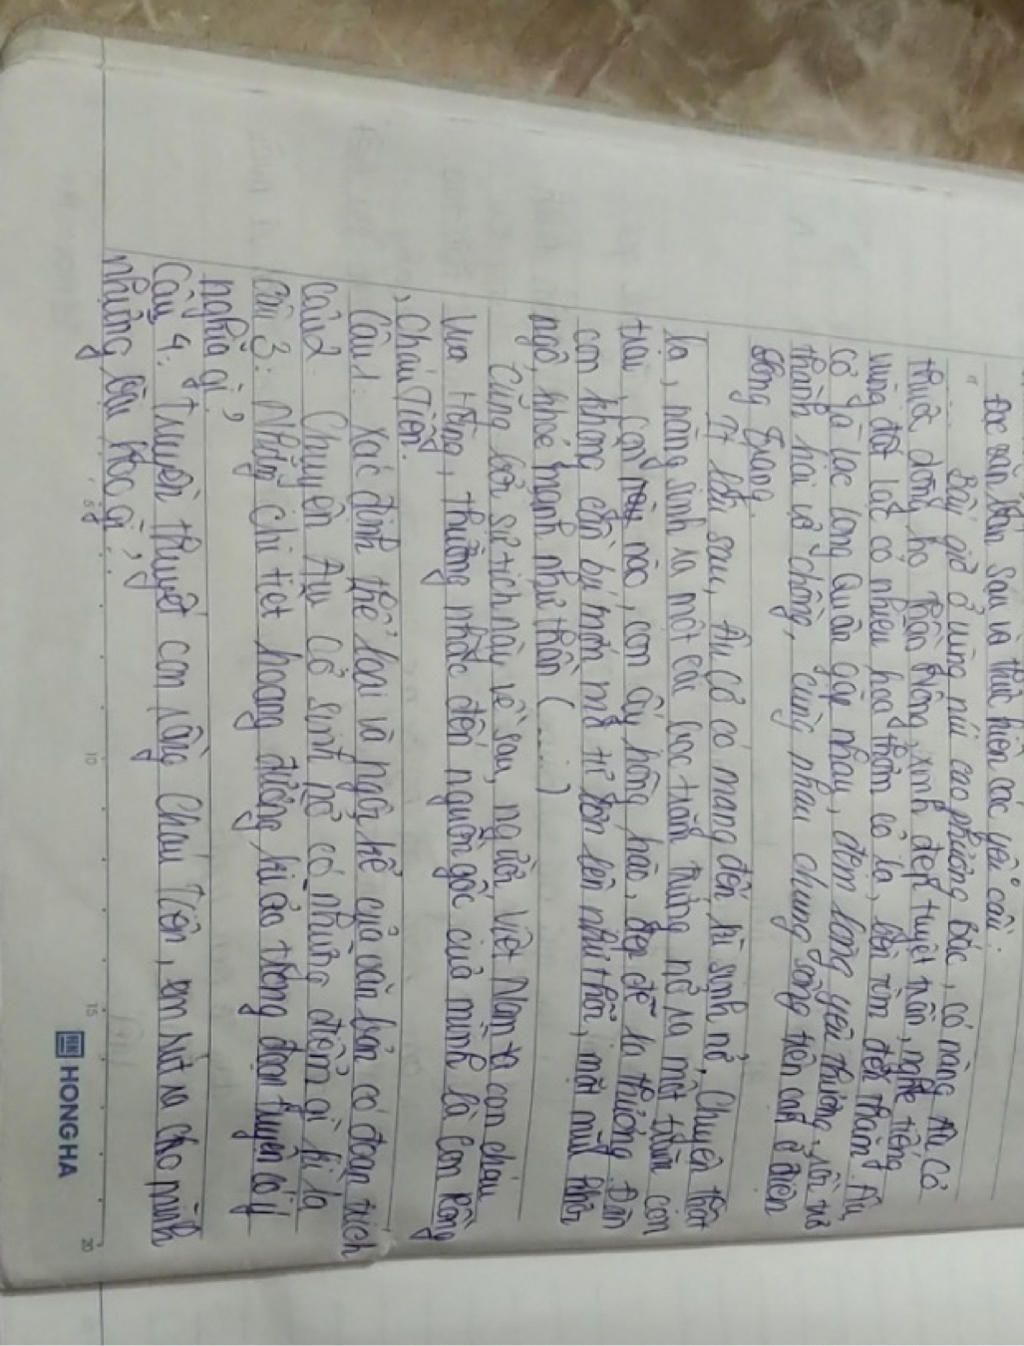 Đọc văn bản sau và thực hiện các yêu cầu:
"... Bấy giờ ở vùng núi cao phương Bắc, có nàng Âu Cơ
thuộc dòng họ Thần Nông, xinh đẹp tuyệt trần, nghe tiếng
vùng đất Lạc có nhiều hoa thơm cỏ lạ, bèn tìm đến thăm. Âu
Cơ và Lạc Long Quân gặp nhau, đem lòng yêu thương, rồi trở
thành hai vợ chồng, cùng nhau chung sống trên cạn ở điện
Long Trang.
Ít lâu sau, Âu Cơ có mang đến kì sinh nở. Chuyện thật
lạ, nàng sinh ra một cái bọc trăm trứng nở ra một trăm con
trai, con nào, con ấy hồng hào, đẹp đẽ lạ thường. Đàn
con không cần bú mớm mà tự lớn lên như thổi, mặt mũi khôi
ngô, khoẻ mạnh như thần (.....)
Cũng bởi sự tích này về sau, người Việt Nam ta con cháu
vua Hùng, thường nhắc đến nguồn gốc của mình là con Rồng
, cháu Tiên.
Câu 1: Xác định thể loại và ngôi kể của văn bản có đoạn trích
Câu 2: Chuyện Âu Cơ sinh nở có những điểm gì kì lạ
Câu 3: Những chi tiết hoang đường kì ảo trong đoạn truyện có ý
nghĩa gì?
Câu 4: Truyền thuyết con rồng Cháu Tiên, em rút ra cho mình
những bài học gì?
HONG HA
5
10
15
20